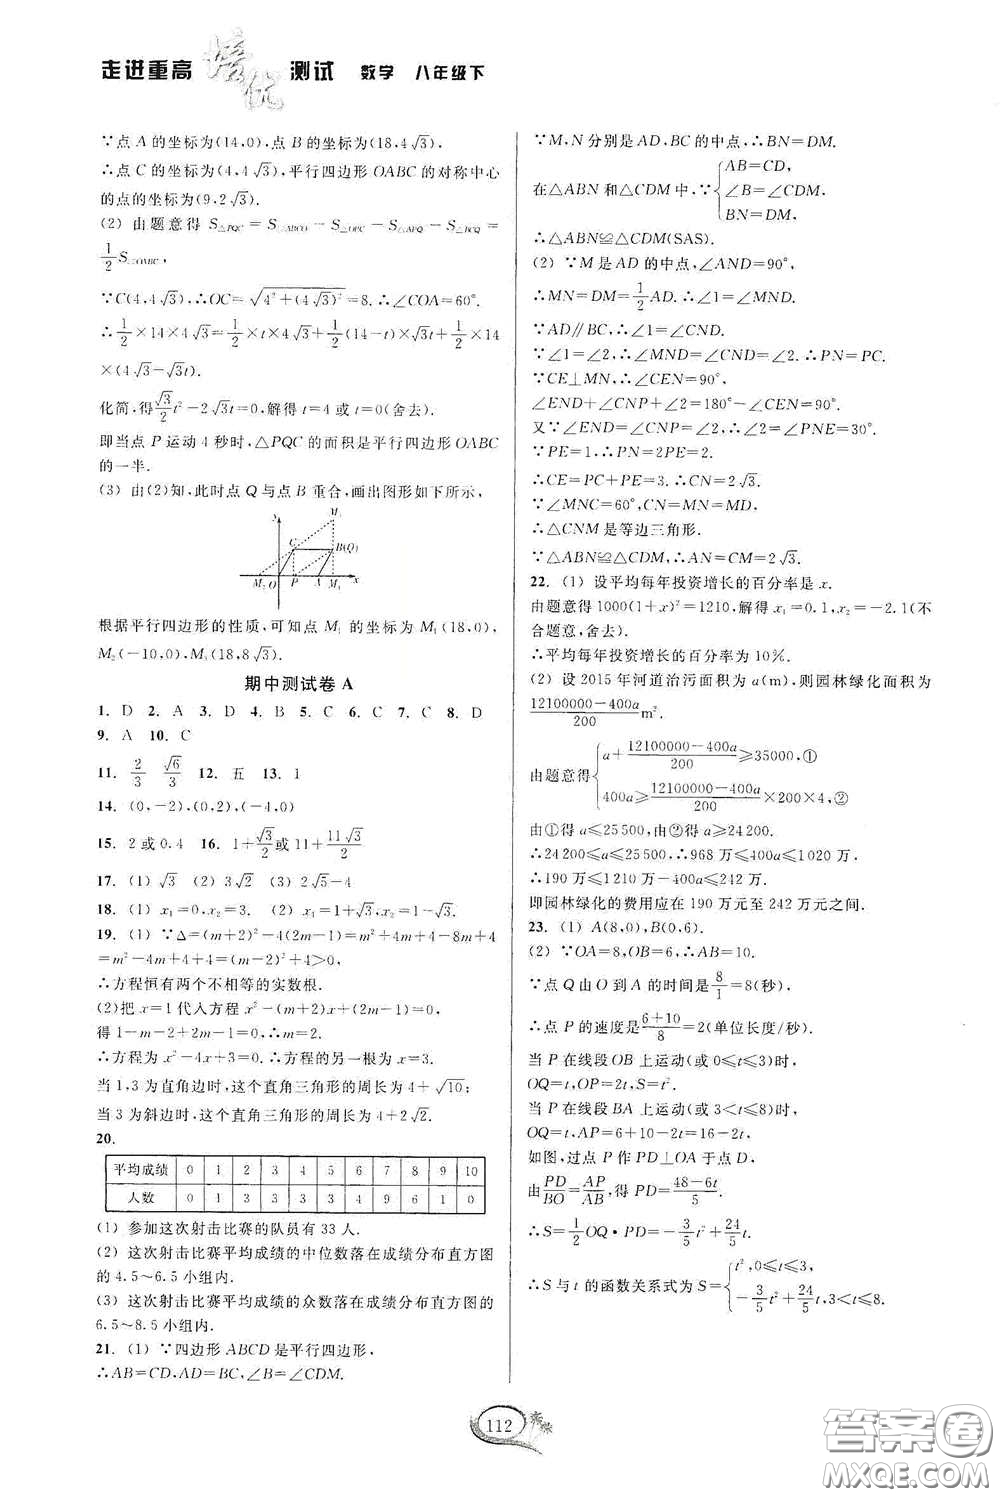 走进重高 培优 测试 数学 八年级下
∵点 A 的坐标为(14,0),点 B 的坐标为(18,4√3),
∴点 C 的坐标为(4,4√3),平行四边形 OABC 的对称中心
的点的坐标为(9,2√3).
(2) 由题意得 S△PQC = S□ABCO − S△OPC − S△APQ − S△BCQ =
1/2 S□OABC,
∵C(4,4√3),∴OC=√(4²+(4√3)²)=8.∴∠COA=60°.
∴1/2×14×4√3=1/2×t×4√3+1/2(14−t)×√3t+1/2×14
×(4√3−√3t).
化简,得√3/2 t²−2√3t=0,解得 t=4 或 t=0(舍去).
即当点 P 运动 4 秒时,△PQC 的面积是平行四边形 OABC
的一半.
(3) 由(2)知,此时点 Q 与点 B 重合,画出图形如下所示,
y M₃
C B(Q)
M₂ O P A M₁ x
根据平行四边形的性质,可知点 M₁ 的坐标为 M₁(18,0),
M₂(−10,0),M₃(18,8√3).
期中测试卷 A
1. D 2. A 3. D 4. B 5. C 6. C 7. C 8. D
9. A 10. C
11. 2/3 √6/3 12. 五 13. 1
14. (0,−2),(0,2),(−4,0)
15. 2 或 0.4 16. 1+√3/2 或 11+11√3/2
17. (1) √3 (2) 3√2 (3) 2√5−4
18. (1) x₁=0,x₂=3. (2) x₁=1+√3,x₂=1−√3.
19. (1) ∵Δ=(m+2)²−4(2m−1)=m²+4m−8m+4
=m²−4m+4+4=(m−2)²+4>0,
∴方程恒有两个不相等的实数根.
(2)把 x=1 代入方程 x²−(m+2)x+(2m−1)=0,
得 1−m−2+2m−1=0,∴m=2.
∴方程为 x²−4x+3=0.∴方程的另一根为 x=3.
当 1,3 为直角边时,这个直角三角形的周长为 4+√10;
当 3 为斜边时,这个直角三角形的周长为 4+2√2.
20.
平均成绩 0 1 2 3 4 5 6 7 8 9 10
人数 0 1 3 3 3 3 4 9 6 1 0
(1) 参加这次射击比赛的队员有 33 人.
(2) 这次射击比赛平均成绩的中位数落在成绩分布直方图
的 4.5~6.5 小组内.
(3) 这次射击比赛平均成绩的众数落在成绩分布直方图的
6.5~8.5 小组内.
21. (1) ∵四边形 ABCD 是平行四边形,
∴AB=CD,AD=BC,∠B=∠CDM.
∵M,N 分别是 AD,BC 的中点,∴BN=DM.
在△ABN 和△CDM 中,∵{AB=CD,
∠B=∠CDM,
BN=DM,
∴△ABN≌△CDM(SAS).
(2) ∵M 是 AD 的中点,∠AND=90°,
∴MN=DM=1/2 AD.∴∠1=∠MND.
∵AD∥BC,∴∠1=∠CND.
∵∠1=∠2,∴∠MND=∠CND=∠2.∴PN=PC.
∵CE⊥MN,∴∠CEN=90°,
∠END+∠CNP+∠2=180°−∠CEN=90°.
又∵∠END=∠CNP=∠2,∴∠2=∠PNE=30°.
∵PE=1,∴PN=2PE=2.
∴CE=PC+PE=3.∴CN=2√3.
∵∠MNC=60°,CN=MN=MD,
∴△CNM 是等边三角形.
∵△ABN≌△CDM,∴AN=CM=2√3.
22. (1) 设平均每年投资增长的百分率是 x.
由题意得 1000(1+x)²=1210,解得 x₁=0.1,x₂=−2.1(不
合题意,舍去).
∴平均每年投资增长的百分率为 10%.
(2) 设 2015 年河道治污面积为 a(m²),则园林绿化面积为
(12100000−400a)/200 m².
由题意得{a+(12100000−400a)/200≥35000,①
400a≥(12100000−400a)/200×200×4,②
由①得 a≤25 500,由②得 a≥24 200.
∴24 200≤a≤25 500,∴968 万≤400a≤1 020 万.
∴190 万≤1 210 万−400a≤242 万.
即园林绿化的费用应在 190 万元至 242 万元之间.
23. (1) A(8,0),B(0,6).
(2) ∵OA=8,OB=6,∴AB=10.
∵点 Q 由 O 到 A 的时间是8/1=8(秒),
∴点 P 的速度是(6+10)/8=2(单位长度/秒).
当 P 在线段 OB 上运动(或 0≤t≤3)时,
OQ=t,OP=2t,S=t².
当 P 在线段 BA 上运动(或 3<t≤8)时,
OQ=t,AP=6+10−2t=16−2t,
如图,过点 P 作 PD⊥OA 于点 D,
由PD/BO=AP/AB,得 PD=(48−6t)/5.
∴S=1/2 OQ·PD=−3/5 t²+24/5 t.
∴S 与 t 的函数关系式为 S={t²,0≤t≤3,
−3/5 t²+24/5 t,3<t≤8.
112
答案圈
MXQE.COM